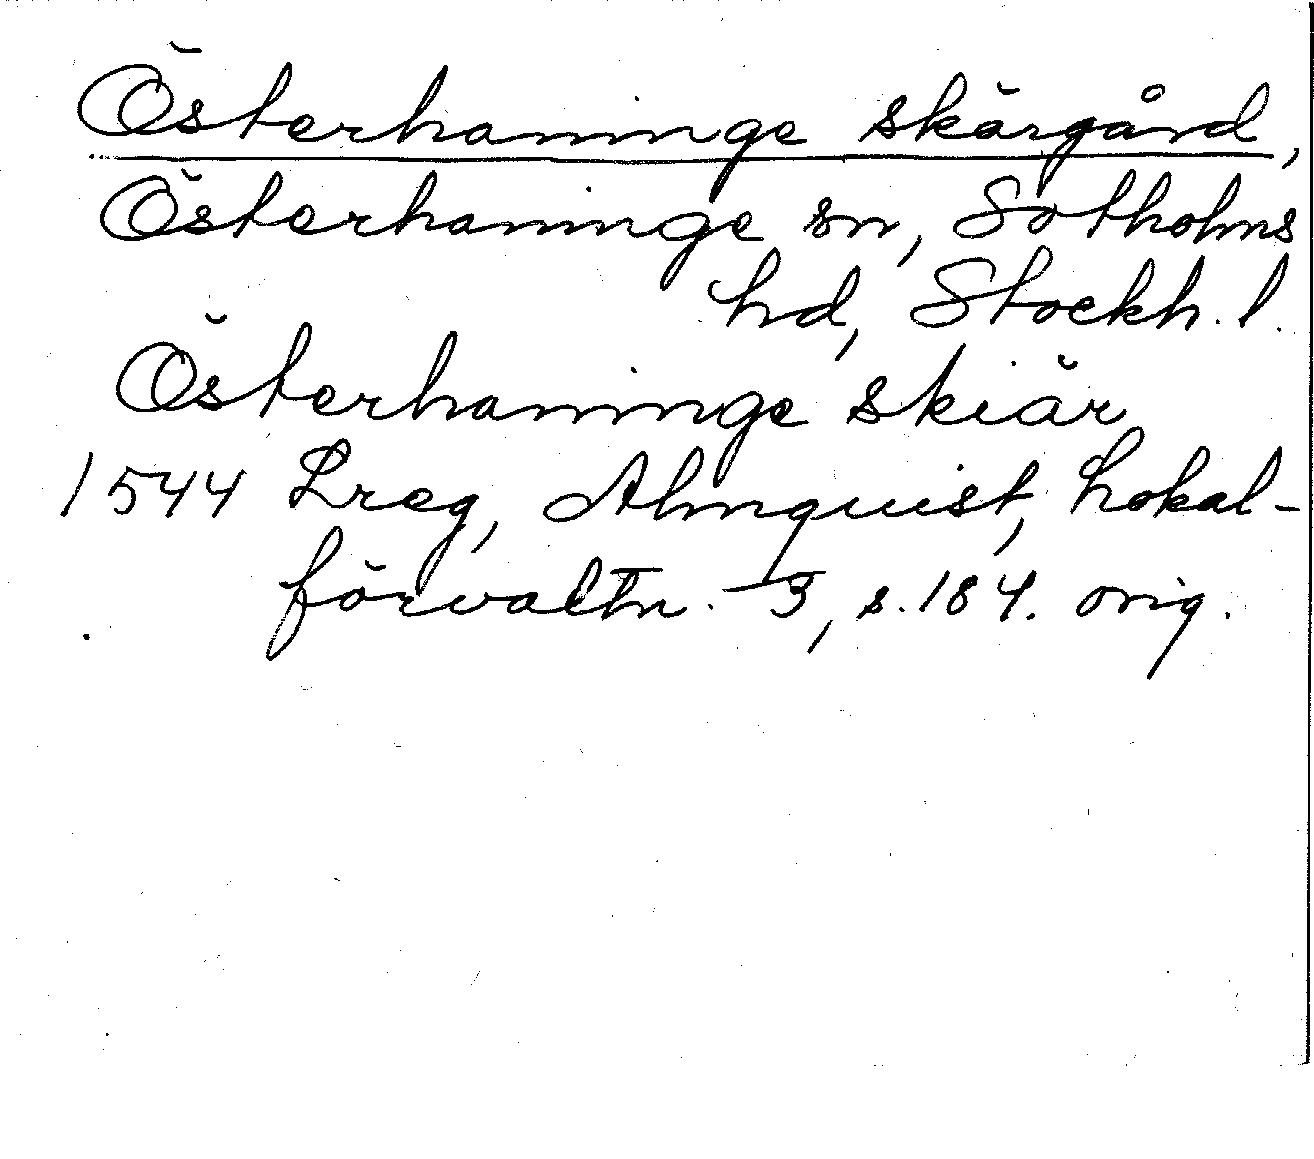 Österhaninge skärgård,
Österhaninge sn, Sotholms
hd, Stockh. l.
Österhaninge skiär
1544 Lreg, Almquist, Lokal-
förvaltn. 3, s. 184. orig.